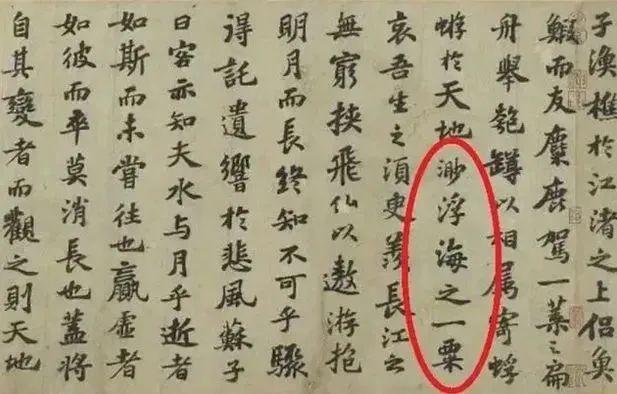 子漁樵於江渚之上侣魚
鰕而友麋鹿駕一葉之扁
舟舉匏罇以相属寄蜉
蝣於天地渺浮海之一粟
哀吾生之須臾羨長江之
無窮挾飛仙以遨游抱
明月而長終知不可乎驟
得託遺響於悲風蘇子
曰客亦知夫水与月乎逝者
如斯而未嘗往也贏虚者
如彼而卒莫消長也蓋將
自其變者而觀之則天地